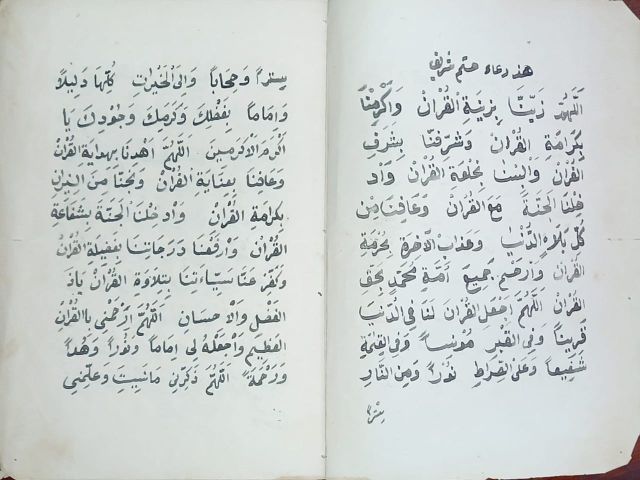 هذ دعاء ختم شريف
اَللّٰهُمَّ زَيِّنَّا بِزِينَةِ الْقُرْاٰنْ وَاَكْرِمْنَا
بِكَرَامَةِ الْقُرْاٰنْ وَشَرِّفْنَا بِشَرَفِ
الْقُرْاٰنْ وَاَلْبِسْنَا بِخُلْعَةِ الْقُرْاٰنْ وَاَدْ
خِلْنَا الْجَنَّةَ مَعَ الْقُرْاٰنْ وَعَافِنَا مِنْ
كُلِّ بَلَاءِ الدُّنْيَا وَعَذَابِ الْاٰخِرَةِ بِحُرْمَةِ
الْقُرْاٰنْ وَارْحَمْ جَمِيعِ اُمَّةِ مُحَمَّدٍ بِحَقِّ
الْقُرْاٰنْ اَللّٰهُمَّ اجْعَلِ الْقُرْاٰنَ لَنَا فِي الدُّنْيَا
قَرِينًا وَفِي الْقَبْرِ مُونِسًا وَفِي الْقِيٰمَةِ
شَفِيعًا وَعَلَى الصِّرَاطِ نُورًا وَمِنَ النَّارِ
سِتْرًا
سِتْرًا وَحِجَابًا وَاِلَى الْخَيْرَاتِ كُلِّهَا دَلِيلًا
وَاِمَامًا بِفَضْلِكَ وَكَرَمِكَ وَجُودِكَ يَا
اَكْرَمَ الْاَكْرَمِينَ اَللّٰهُمَّ اهْدِنَا بِهِدَايَةِ الْقُرْاٰنْ
وَعَافِنَا بِعِنَايَةِ الْقُرْاٰنْ وَنَجِّنَا مِنَ النِّيرَانِ
بِكَرَامَةِ الْقُرْاٰنْ وَاَدْخِلْنَا الْجَنَّةَ بِشَفَاعَةِ
الْقُرْاٰنْ وَارْفَعْنَا دَرَجَاتِنَا بِفَضِيلَةِ الْقُرْاٰنْ
وَكَفِّرْ عَنَّا سَيِّاٰتِنَا بِتِلَاوَةِ الْقُرْاٰنْ يَاذَ
الْفَضْلِ وَالْاِحْسَانِ اَللّٰهُمَّ ارْحَمْنِي بِالْقُرْاٰنْ
الْعَظِيمِ وَاجْعَلْهُ لِي اِمَامًا وَنُورًا وَهُدًا
وَرَحْمَةً اَللّٰهُمَّ ذَكِّرْنِي مَا نَسِيتُ وَعَلِّمْنِي